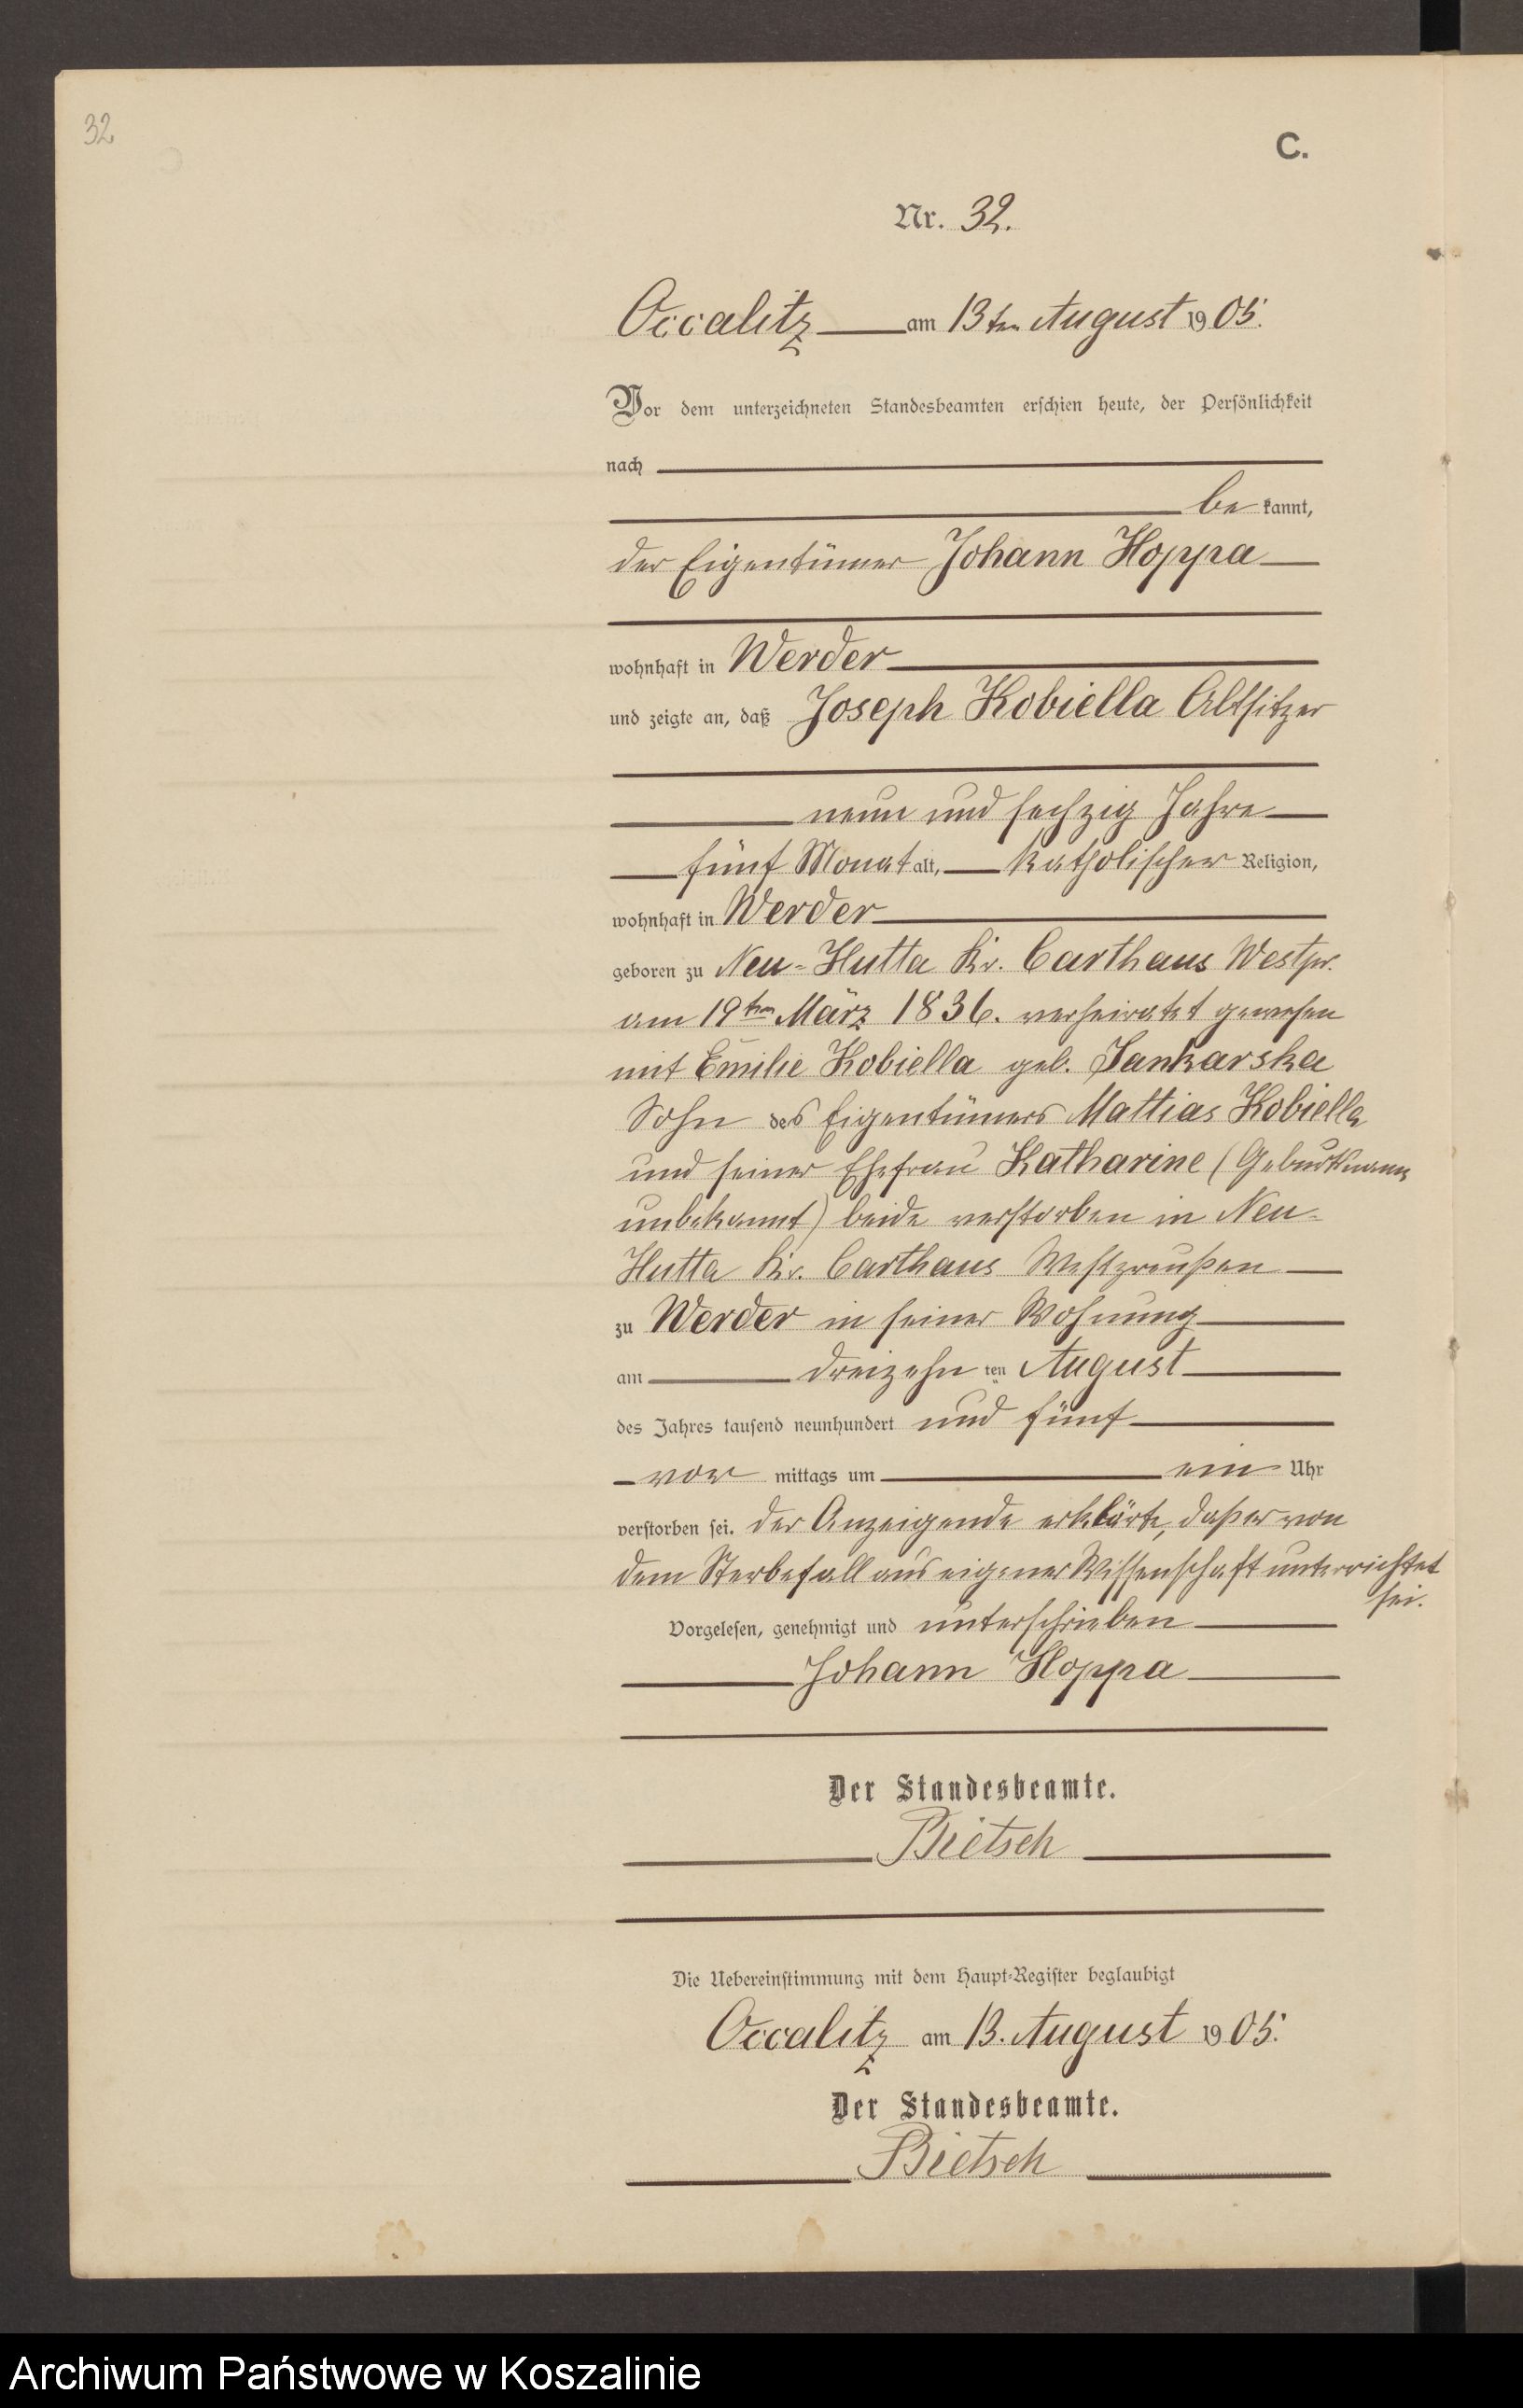 32
C.
Nr. 32.
Occalitz am 13ten August 1905.
Vor dem unterzeichneten Standesbeamten erschien heute, der Persönlichkeit
nach
be kannt,
der Eigentümer Johann Hoppa
wohnhaft in Werder
und zeigte an, daß Joseph Kobiella Altsitzer
neun und sechzig Jahre
fünf Monat alt, katholischer Religion,
wohnhaft in Werder
geboren zu Neu-Hutta Kr. Carthaus Westpr.
am 19ten März 1836. verheiratet gewesen
mit Emilie Kobiella geb. Jankarska
Sohn des Eigentümers Mattias Kobiella
und seiner Ehefrau Katharine (Geburtsname
unbekannt) beide verstorben in Neu-
Hutta Kr. Carthaus Westpreußen
zu Werder in seiner Wohnung
am dreizehn ten August
des Jahres tausend neunhundert und fünf
vor mittags um ein Uhr
verstorben sei. Der Anzeigende erklärte, daß er von
dem Sterbefall aus eigener Wissenschaft unterrichtet
sei.
Vorgelesen, genehmigt und unterschrieben
Johann Hoppa
Der Standesbeamte.
Bietsch
Die Uebereinstimmung mit dem Haupt-Register beglaubigt
Occalitz am 13. August 1905.
Der Standesbeamte.
Bietsch
Archiwum Państwowe w Koszalinie